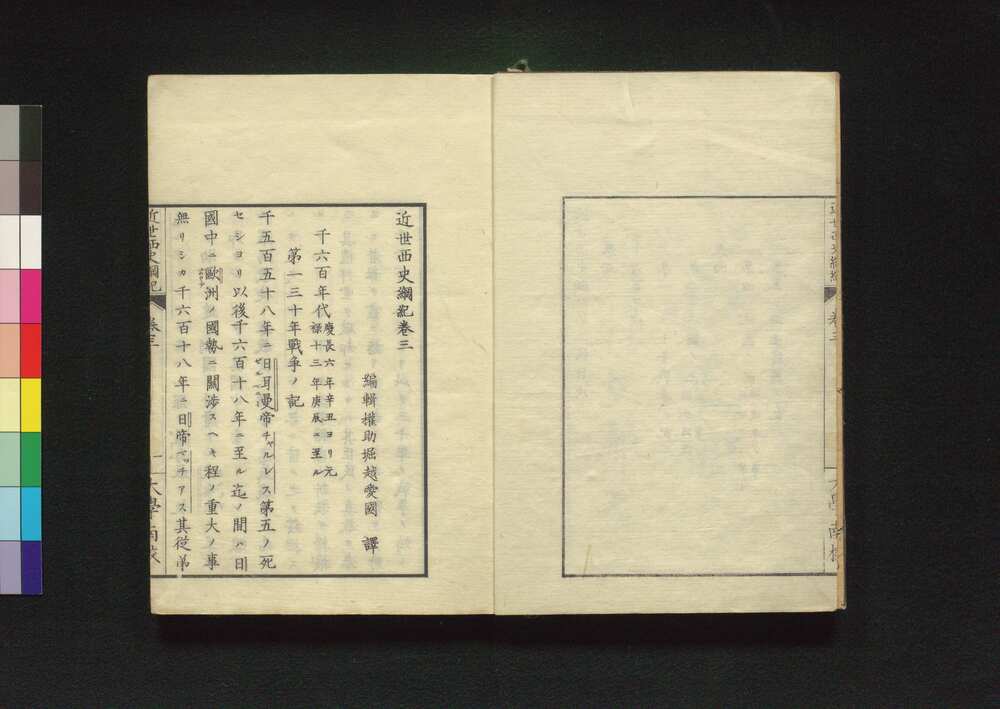 近世西史綱紀卷三
編輯權助堀越愛國 譯
千六百年代慶長六年辛丑ヨリ元
祿十三年庚辰ニ至ル
第一三十年戰爭ノ記
千五百五十八年ニ日耳曼帝チャルレス第五ノ死
セシヨリ以後千六百十八年ニ至ル迄ノ間ハ日
國中ニ歐洲ノ國勢ニ關渉スヘキ程ノ重大ノ事
無リシカ千六百十八年ニ日帝マッチアス其從弟
近世西史綱紀 卷三
一 大學南校